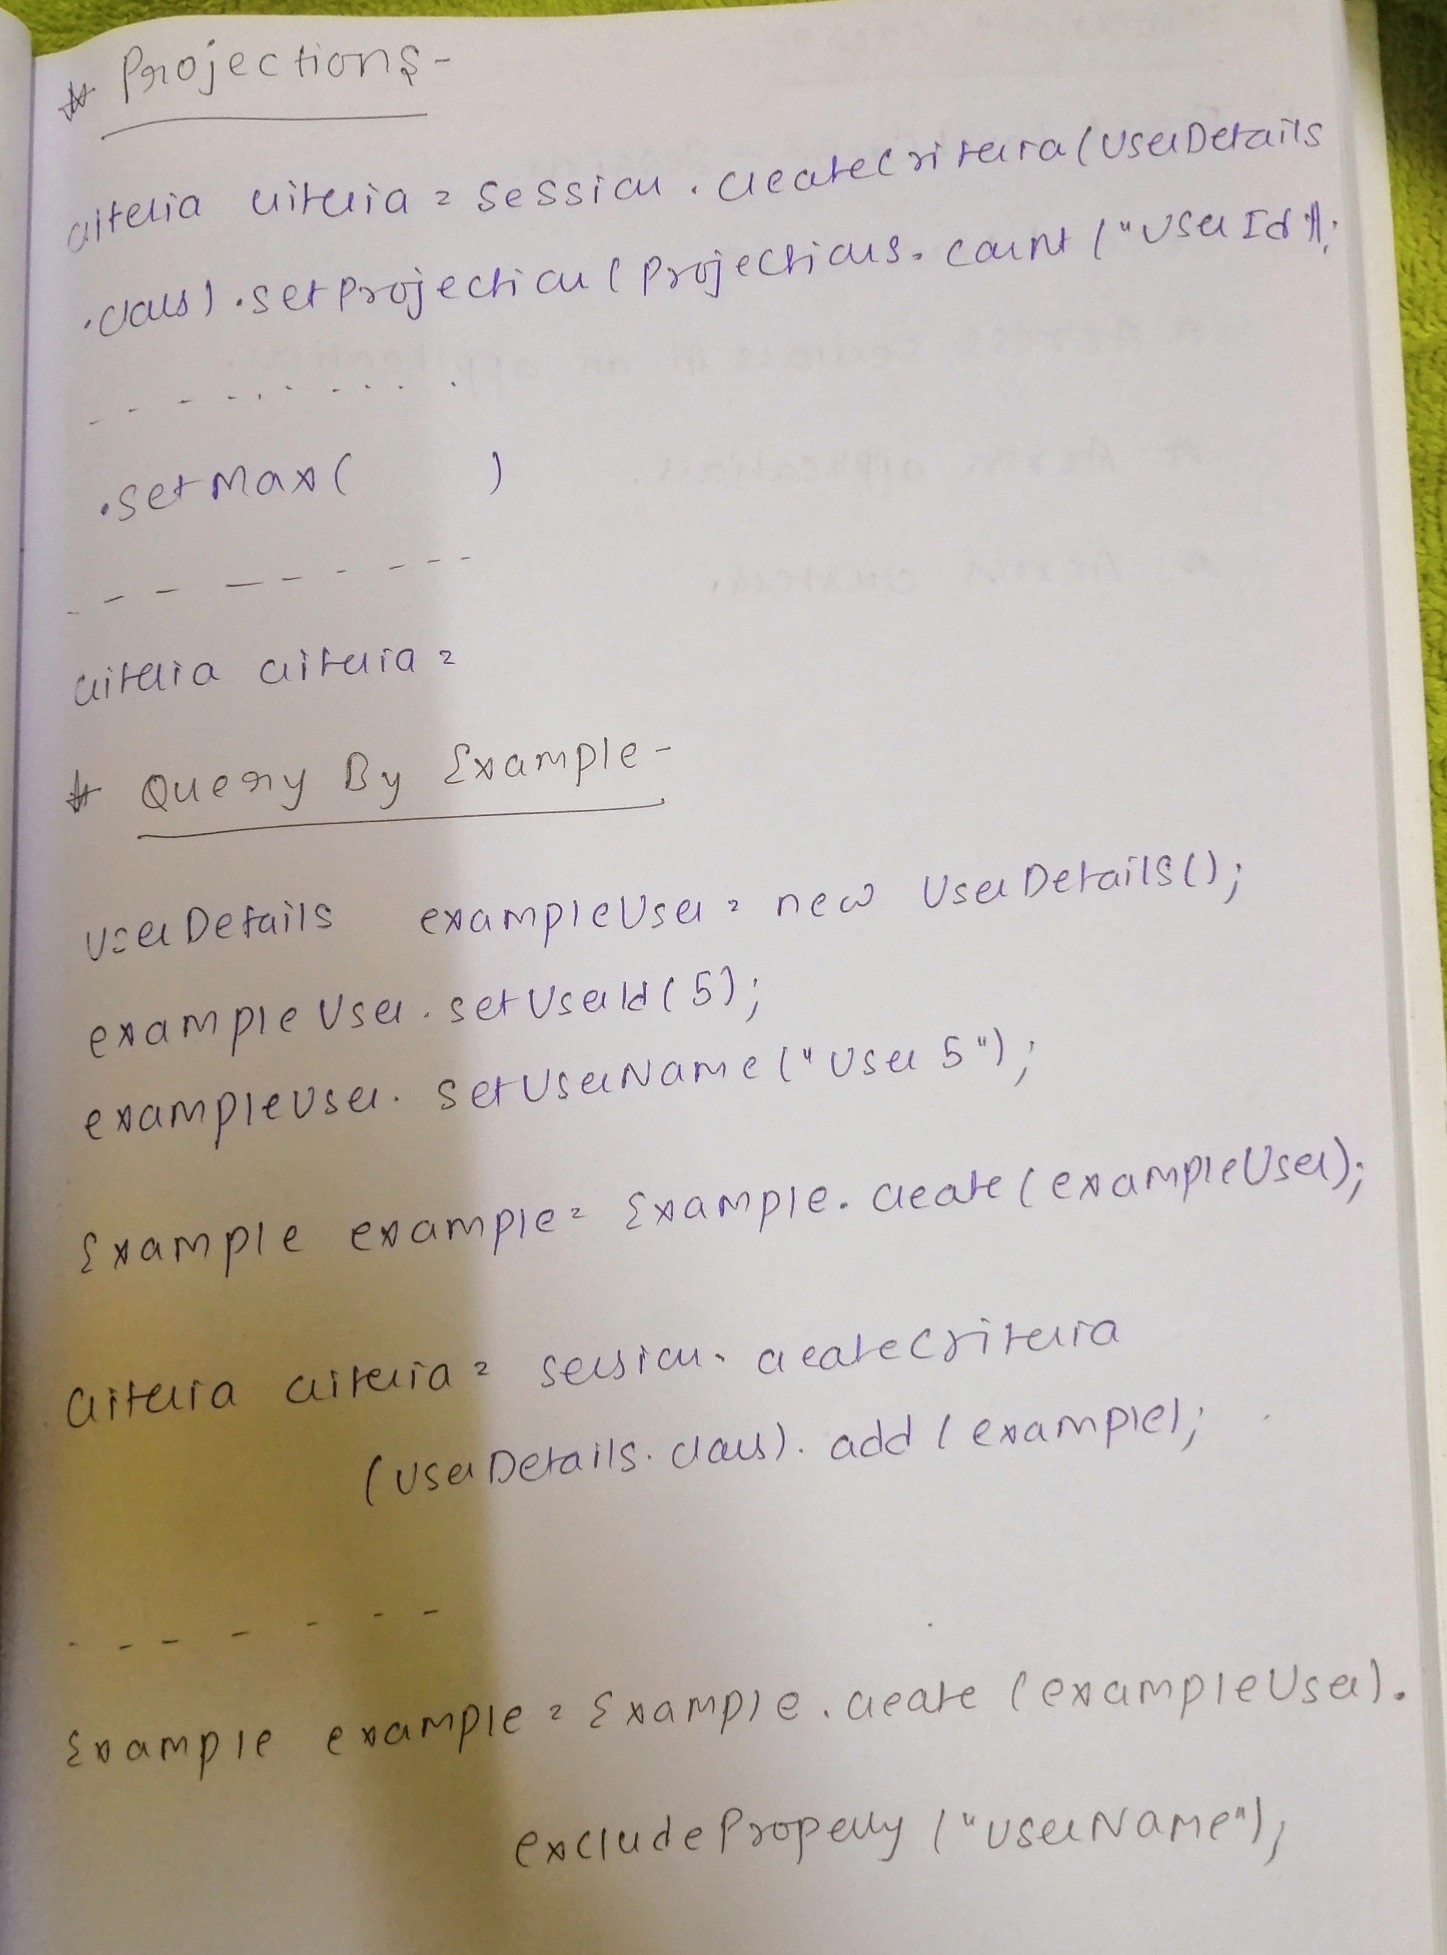 * Projections -
criteria criteria = session.createCriteria(UserDetails
.class).setProjection(Projections.count("UserId"));
- - - - - - - - - -
.setMax( )
- - - - - - - - -
criteria criteria =
* Query By Example -
UserDetails exampleUser = new UserDetails();
exampleUser.setUserId(5);
exampleUser.setUserName("User 5");
Example example = Example.create(exampleUser);
Criteria criteria = session.createCriteria
(UserDetails.class).add(example);
- - - - - - -
Example example = Example.create(exampleUser).
excludeProperty("userName");